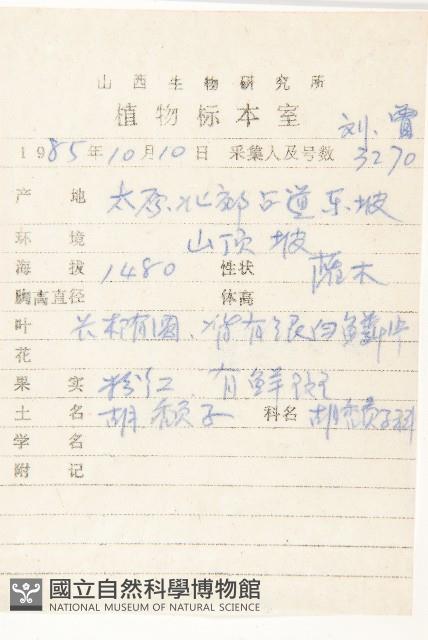 山西生物研究所
植物标本室
刘、曾
1985年10月10日 采集人及号数 3270
产地 太原北郊 道东坡
环境 山顶坡
海拔 1480 性状 灌木
胸高直径 体高
叶 背有银白鳞片
花
果实 粉红 有鲜斑
土名 胡颓子 科名 胡颓子科
学名
附记
國立自然科學博物館
NATIONAL MUSEUM OF NATURAL SCIENCE